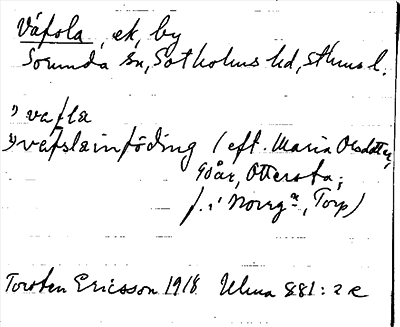 Våfsla, ek, by
Sorunda sn, Sotholms hd, Sthms l.
"vafla
"vafslainföding (eft. Maria Olsdotter,
90 år, Ottersta;
f. i Norrgn, Torp)
Torsten Ericsson 1918. Ulma 881:2 e